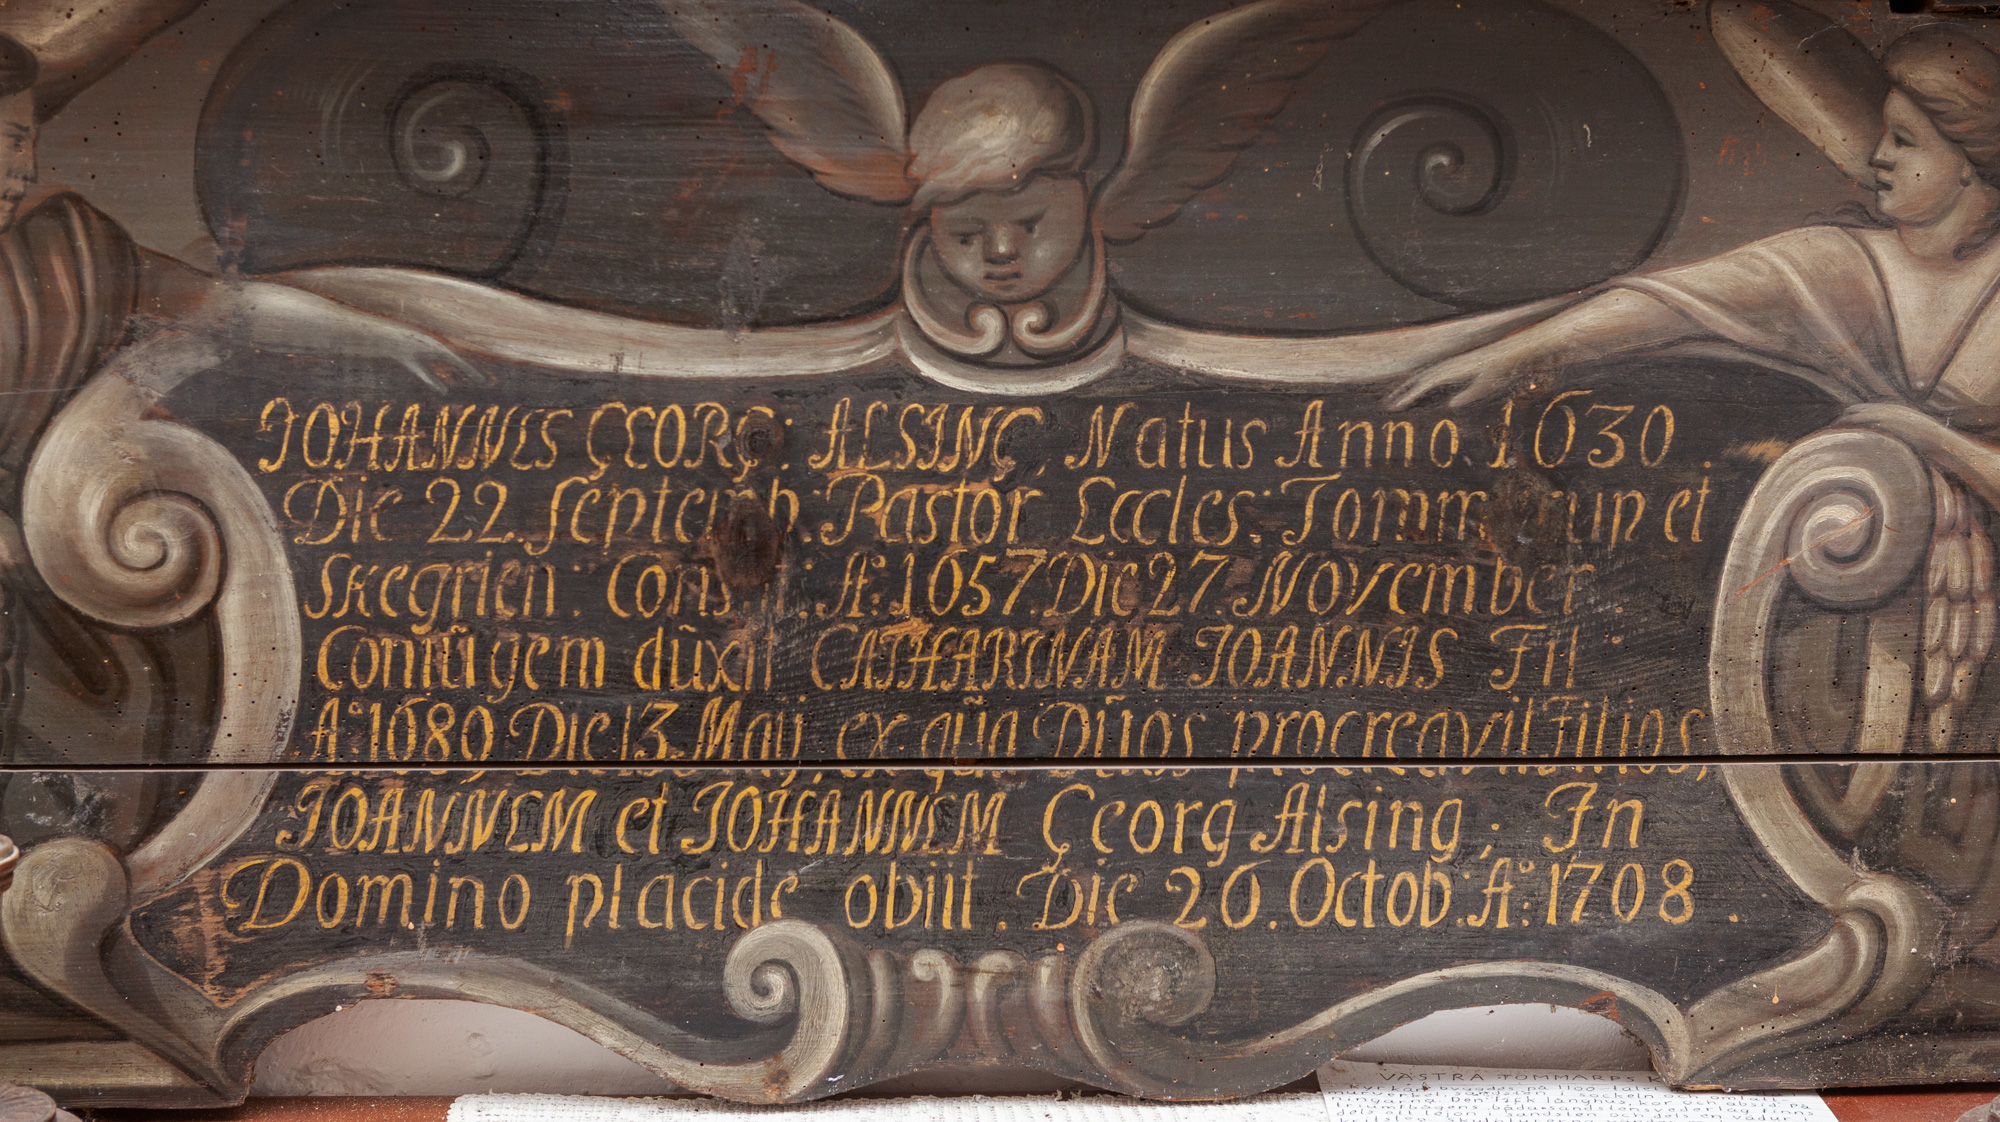 JOHANNES GEORG: ALSING, Natus Anno 1630.
Die 22. Septemb: Pastor Eccles: Tommerup et
Skegrien: A:o 1657. Die 27. November
Coniũgem dũxit CATHARINAM JOANNIS Fil:
A:o 1689 Die 13. Maij, ex qũa Dũos procreavit Filios,
JOANNEM et JOHANNEM Georg Alsing; In
Domino placide obiit. Die 26. Octob: A:o 1708.
VÄSTRA TOMMARPS